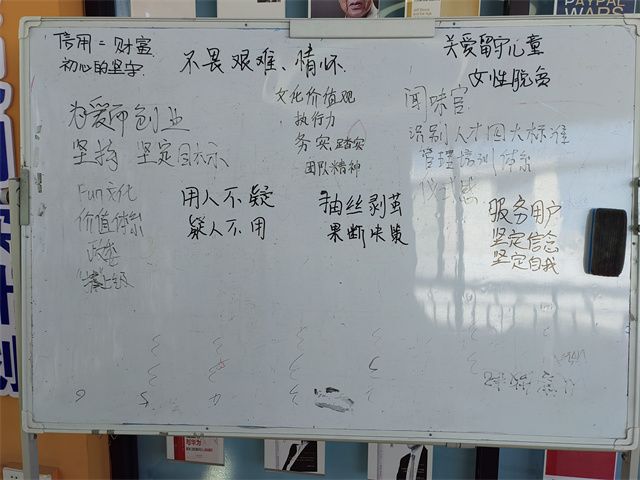 信用=财富
初心的坚守
不畏艰难、情怀
关爱留守儿童
女性脱贫
文化价值观
执行力
务实踏实
团队精神
为爱而创业
坚持 坚定目标
闻味官
识别人才四大标准
管理培训体系
仪式感
Fun文化
价值体系
政委
用人不疑
疑人不用
抽丝剥茧
果断决策
服务用户
坚定信念
坚定自我
PAYPAL
WARS